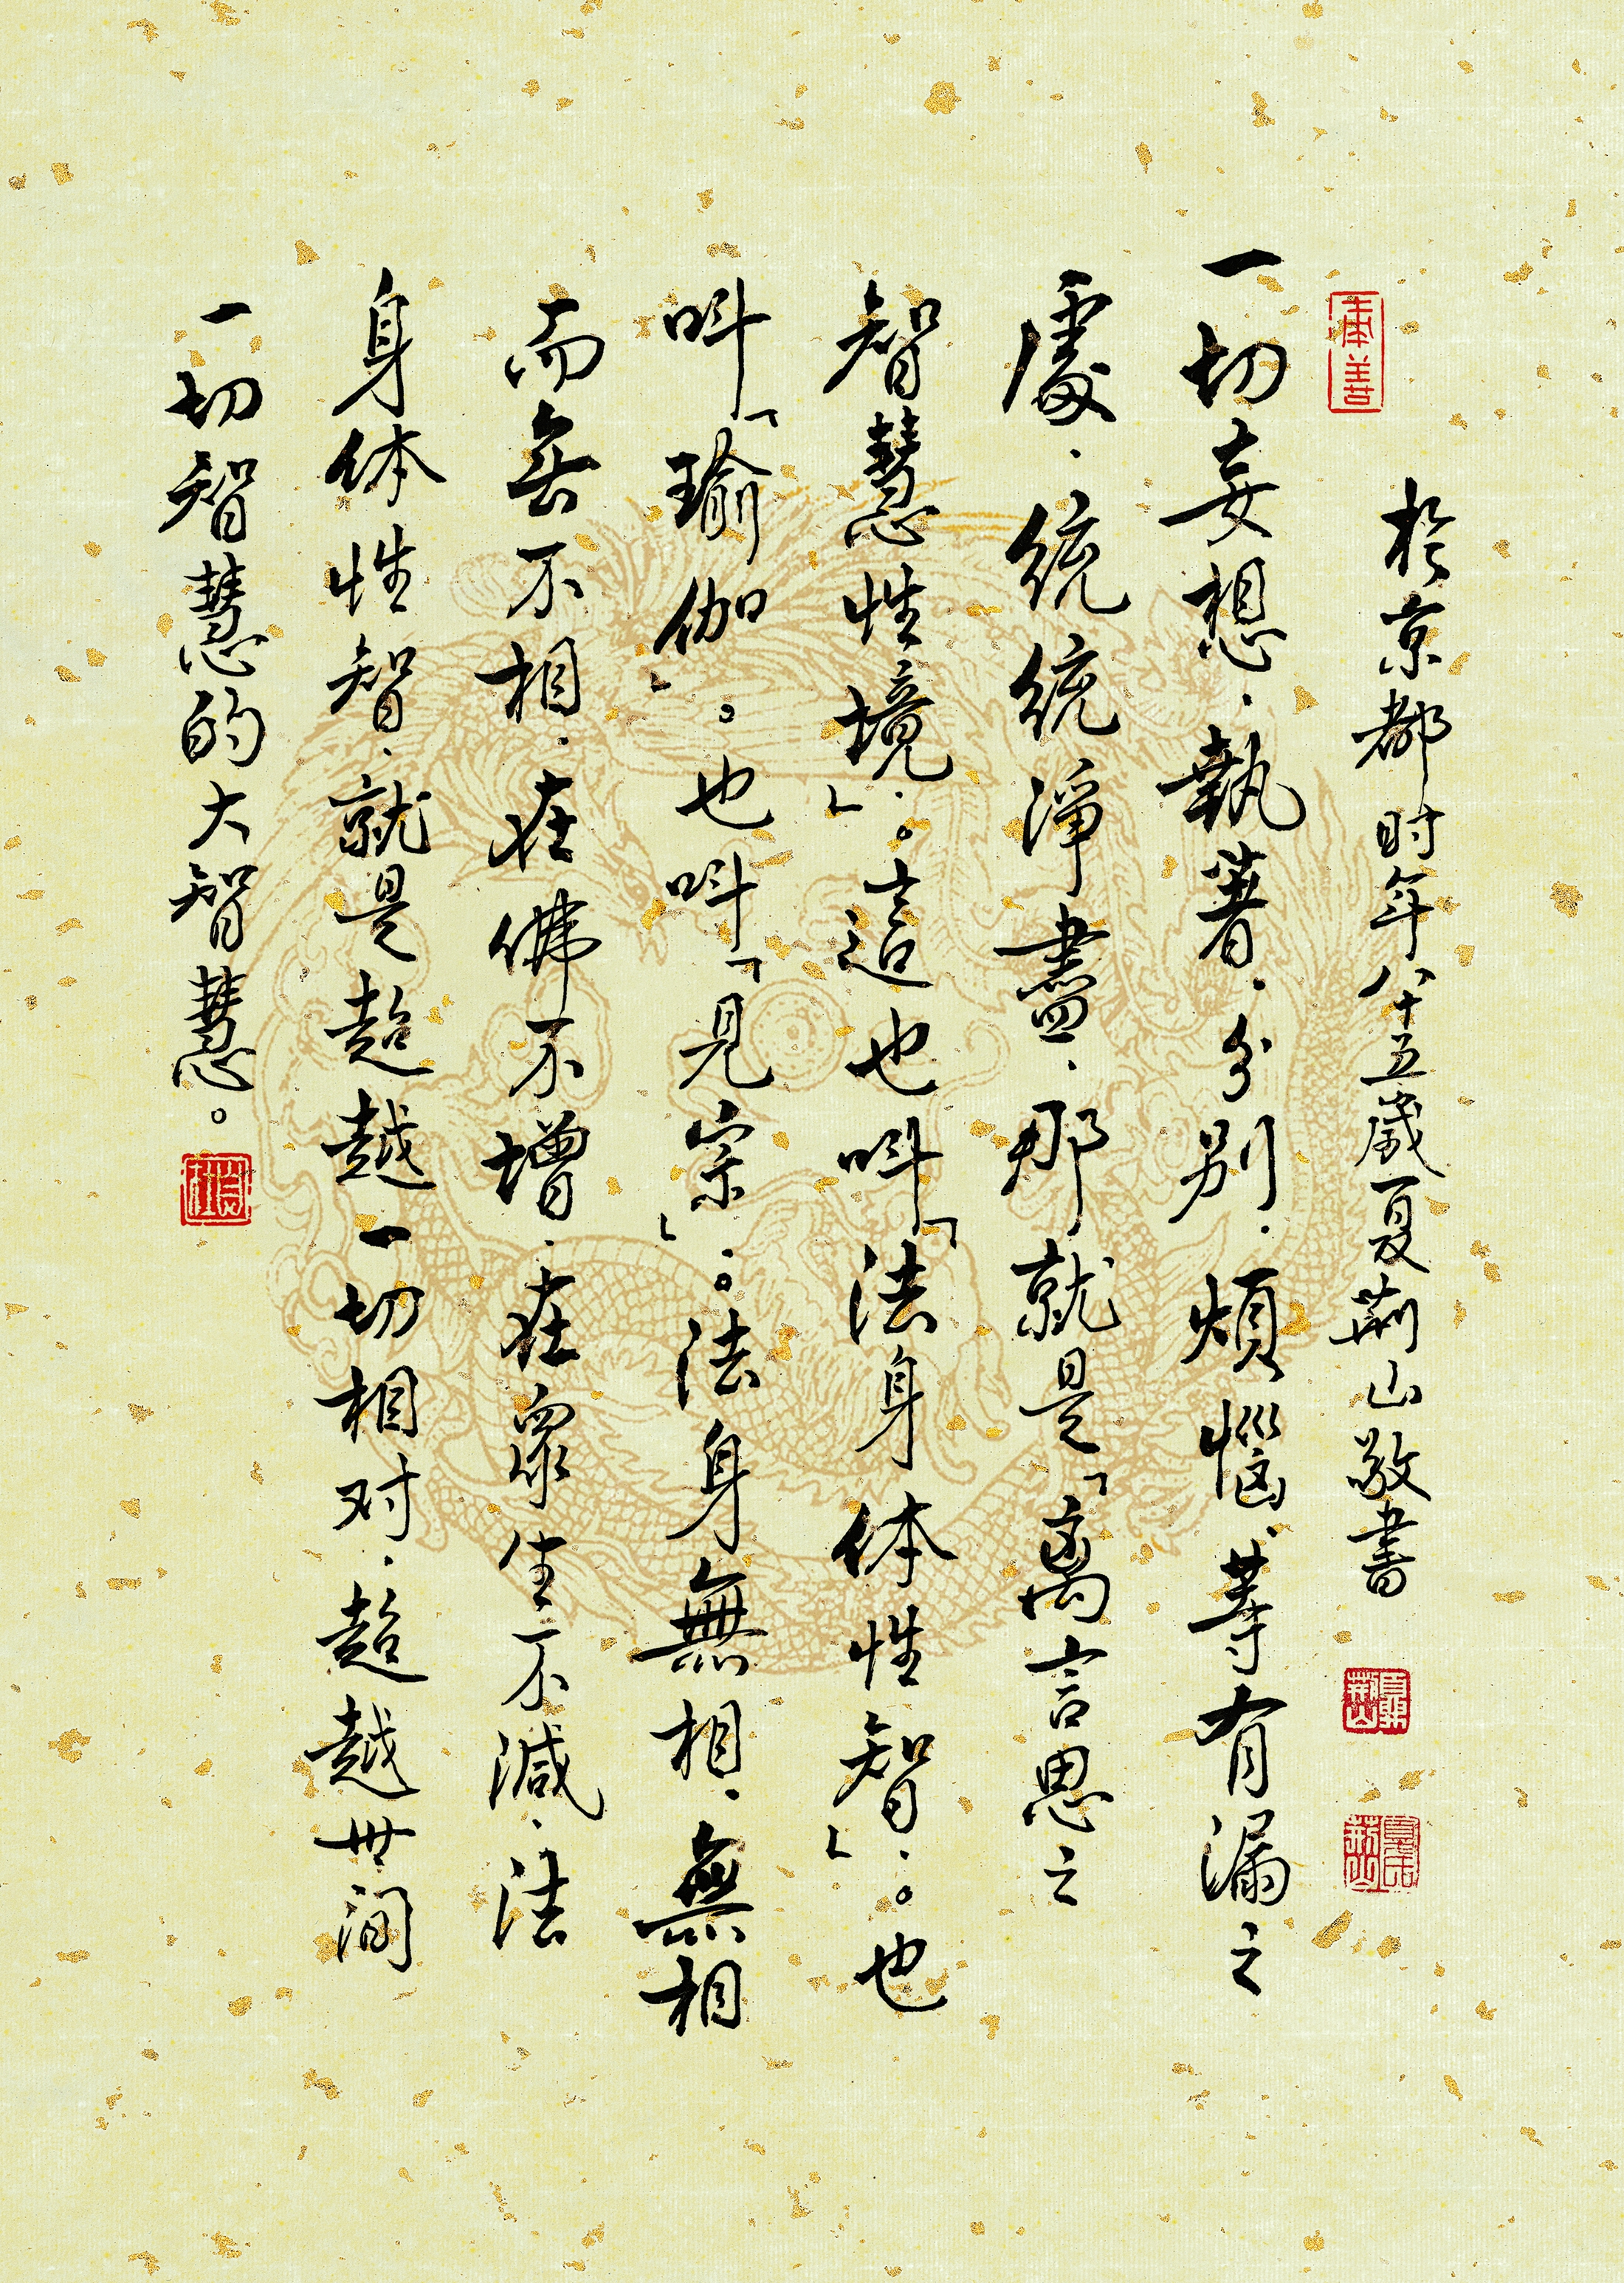 於京都时年八十五歲夏荊山敬書
奉善
一切妄想.執著.分别.煩惱等有漏之
處.統統淨盡.那就是「离言思之
智慧性境」.。這也叫「法身体性智」.。也
叫「瑜伽」。也叫「見宗」.。法身無相.無相
而無不相.在佛不增.在眾生不減.法
身体性智.就是超越一切相对.超越世间
一切智慧的大智慧。